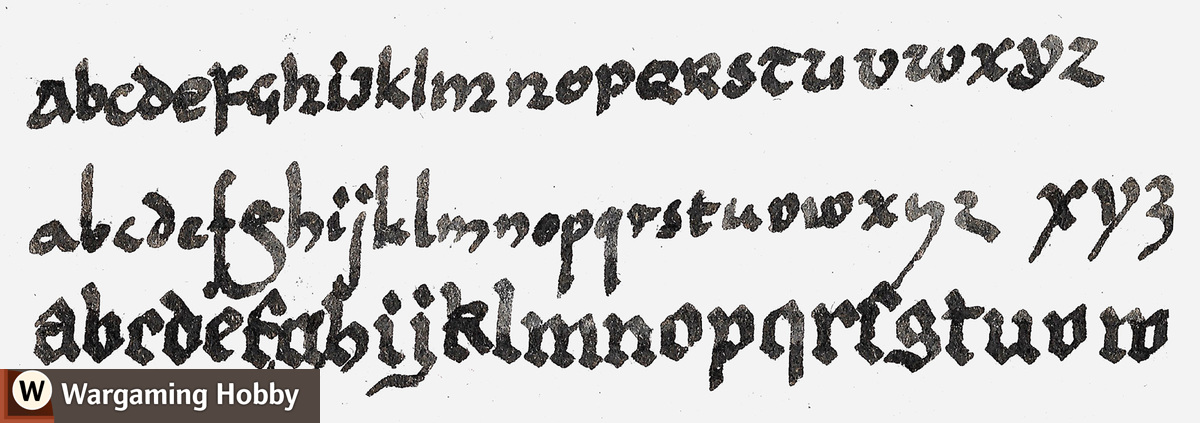 abcdefghijklmnopqrstuvwxyz
abcdefghijklmnopqrstuvwxyz xyz
abcdefghijklmnopqrſstuvw
W Wargaming Hobby